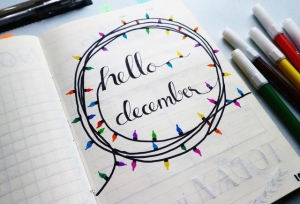 hello
december